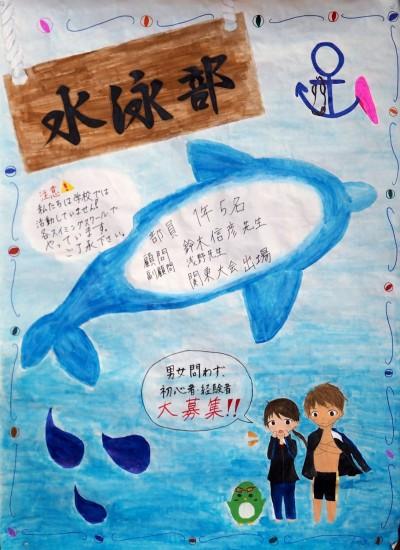 水泳部
注意
私たちは学校では
活動していません!
各スイミングスクールで
やっています。
ご了承下さい。
部員 1年5名
顧問 鈴木信彦先生
副顧問 浅野先生
関東大会出場
男女問わず
初心者・経験者
大募集!!